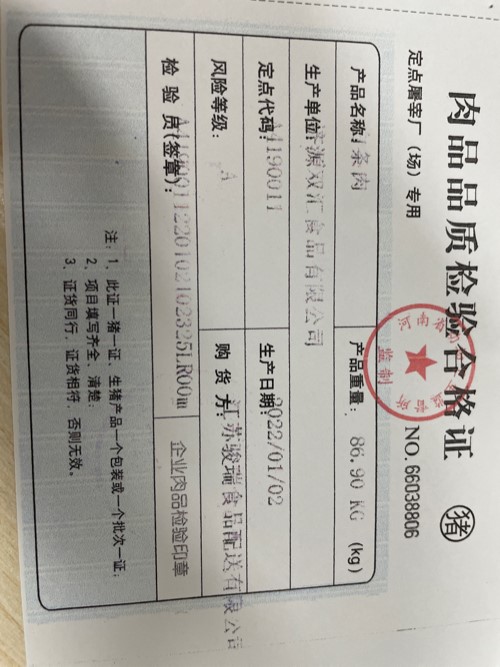 肉品品质检验合格证 猪
定点屠宰厂（场）专用
NO. 66038806
河南省
监制
产品名称: 条肉
产品重量: 86.90 KG (kg)
生产单位: 济源双汇食品有限公司
定点代码: A1190011
生产日期: 2022/01/02
风险等级: A
购货方: 江苏骏瑞食品配送有限公司
检验员(签章):
企业肉品检验印章
注: 1、此证一猪一证、生猪产品一个包装或一个批次一证;
2、项目填写齐全、清楚;
3、证货同行, 证货相符, 否则无效。